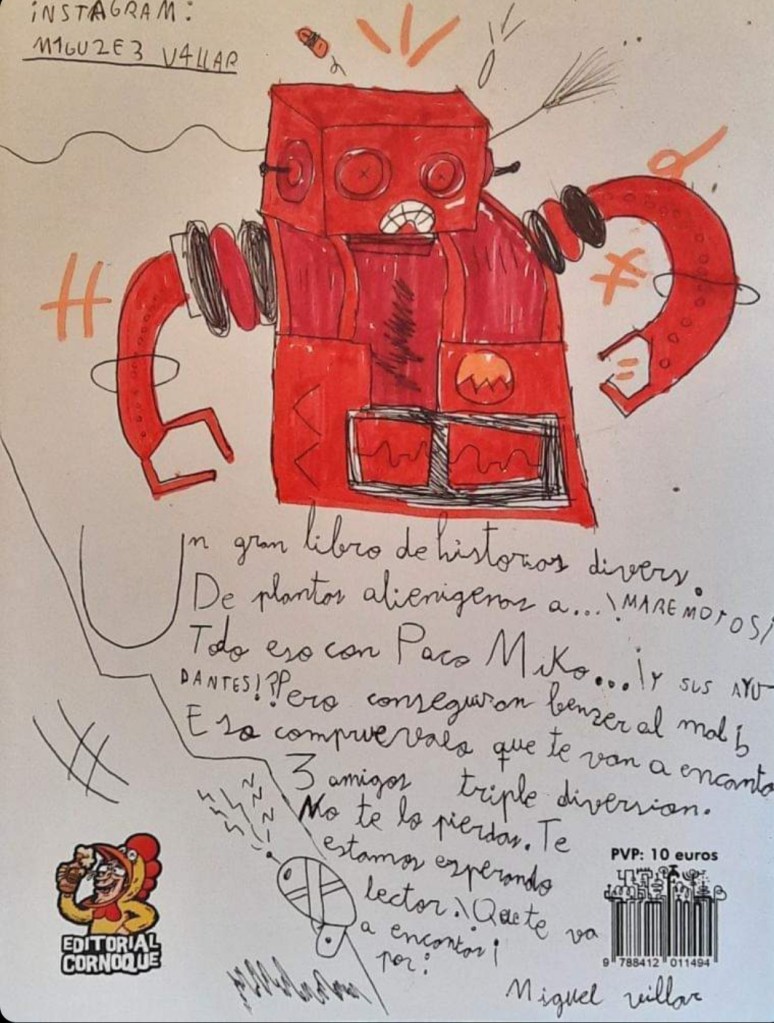 INSTAGRAM:
M1GUZE3 V4LLAR
Un gran libro de historias divers.
De plantas alienigenas a...¡MAREMOTOS!
Todo eso con Paco Miko...¡Y SUS AYU
DANTES!?Pero conseguiran benser al mal
Eso compruevalo que te van a encanta
3 amigos triple diversion.
No te lo pierdas. Te
estamos esperando
lector.¡Que te va
a encantar!
por:
Miguel villar
EDITORIAL
CORNOQUE
PVP: 10 euros
9 788412 011494